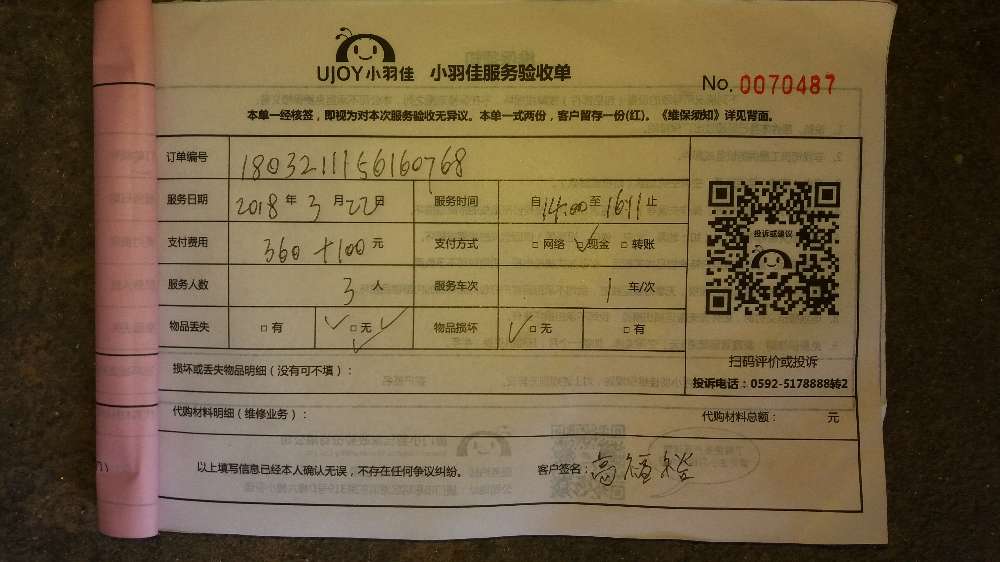 UJOY小羽佳 小羽佳服务验收单
No. 0070487
本单一经核签，即视为对本次服务验收无异议。本单一式两份，客户留存一份(红)。《维保须知》详见背面。
订单编号 18032111156160768
服务日期 2018 年 3 月 22 日 服务时间 自 14:00 至 1611 止
支付费用 360+100 元 支付方式 □ 网络 □ 现金 □ 转账
投诉或建议
服务人数 3 人 服务车次 1 车/次
物品丢失 □ 有 □ 无 物品损坏 □ 无 □ 有
扫码评价或投诉
损坏或丢失物品明细（没有可不填）：
投诉电话：0592-5178888转2
代购材料明细（维修业务）： 代购材料总额： 元
以上填写信息已经本人确认无误，不存在任何争议纠纷。 客户签名：高